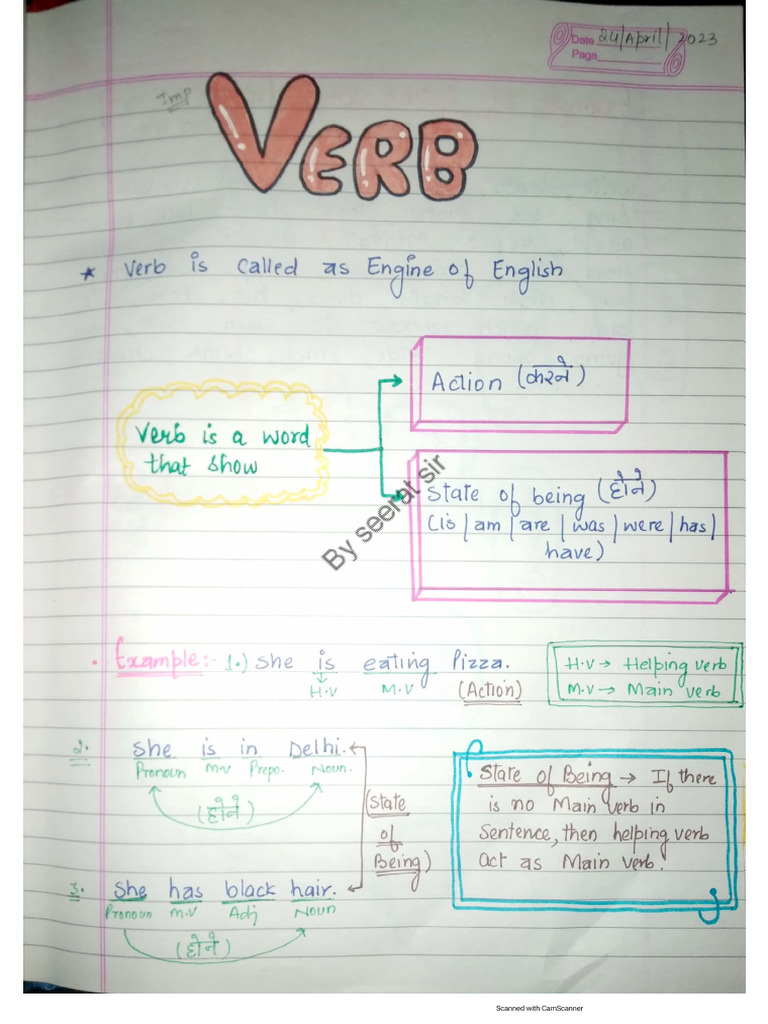 Date 24/April/2023
Page
Imp
VERB
★ Verb is called as Engine of English
Action (करने)
Verb is a word
that show
State of being (होने)
(is/am/are/was/were/has/
have)
By seerat sir
Example:- 1.) She is eating Pizza.
H.V M.V (Action)
H.V → Helping verb
M.V → Main verb
2. She is in Delhi.
Pronoun M.V Prepo. Noun.
(होने)
(State
of
Being)
State of Being → If there
is no Main verb in
Sentence, then helping verb
act as Main verb.
3. She has black hair.
Pronoun M.V Adj Noun
(होने)
Scanned with CamScanner